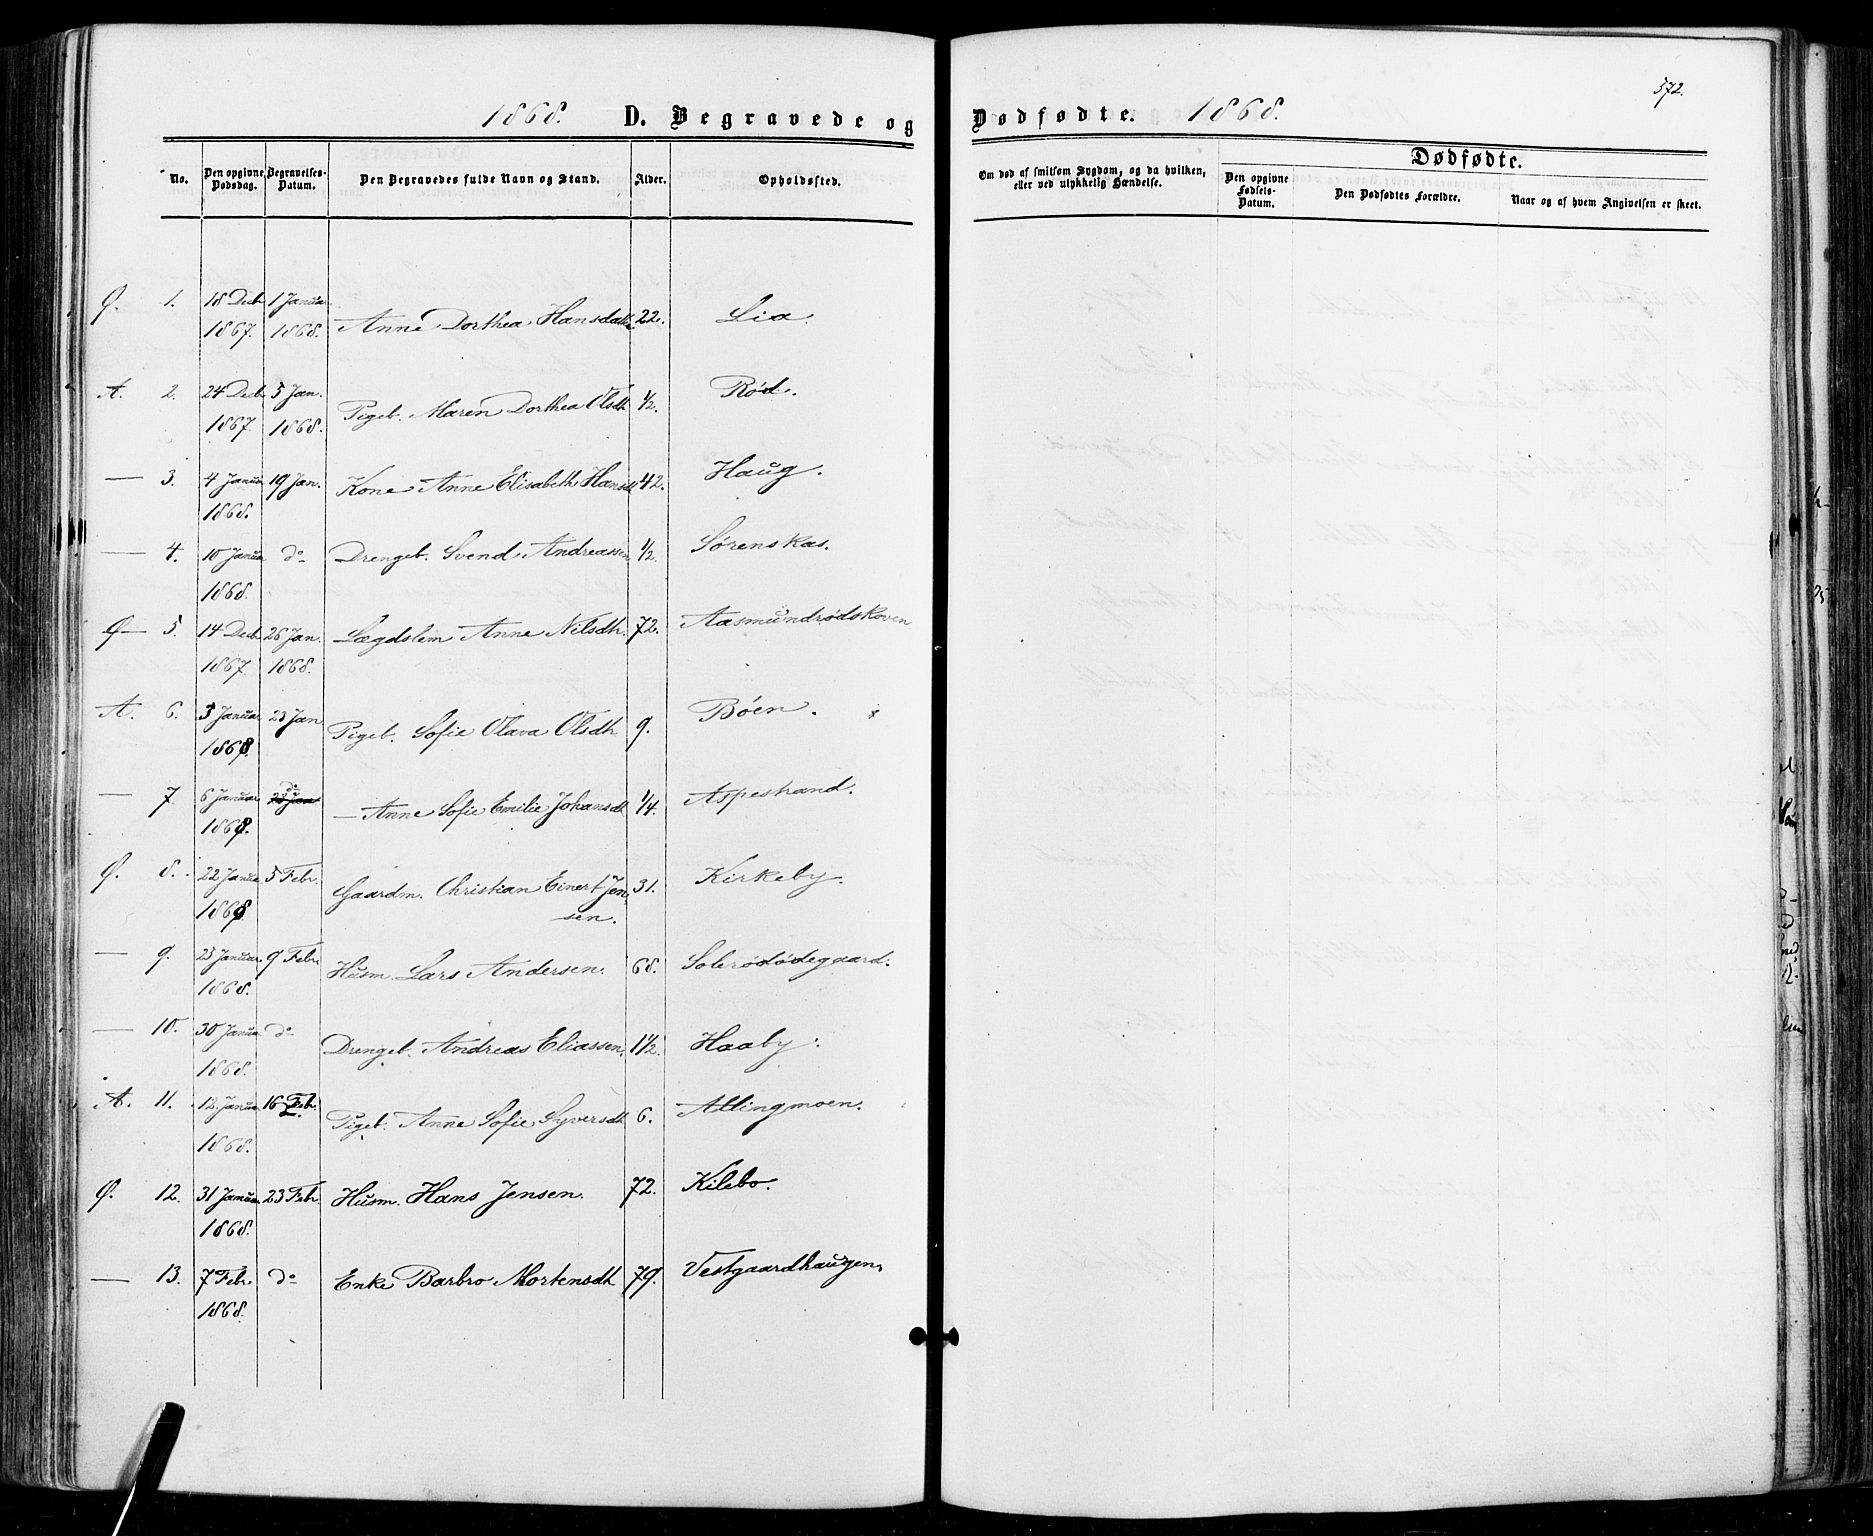 572.
1868. D. Begravede og Dødfødte. 1868.
No. Den opgivne Dødsdag. Begravelses-Datum. Den Begravedes fulde Navn og Stand. Alder. Opholdssted.
Om død af smitsom Sygdom, og da hvilken, eller ved ulykkelig Hændelse.
Dødfødte.
Den opgivne Fødsels-Datum. Den Dødfødtes Forældre. Naar og af hvem Angivelsen er skeet.
Ø. 1. 18 Decb 1 Januar
1867. 1868. Anne Dorthea Hansdatt 22. Lia.
A. 2. 24 Decb 5 Jan. Rød.
1867. 1868. Pigeb. Maren Dorthea Olsdt 1/2.
— 3. 4 Januar 19 Jan. Kone Anne Elisabeth Hansdt 42. Haug.
1868.
— 4. 10 Januar do Drengeb. Svend Andreassen 1/2. Sørenskas.
1868.
Ø — 5. 14 Decb 26 Jan. Lægdslem Anne Nilsdt. 72. Aasmundrødskoven
1867. 1868.
A. 6. 3 Januar 23 Jan Pigeb. Sofie Olava Olsdt 9. Bøen.
1868.
— 7 6 Januar do 23 Jan — Anne Sofie Emilie Johansdt 1/4. Aspestrand.
1868.
Ø. 8. 22 Janua 5 Febr. Gaardm. Christian Einert Jen 31. Kirkeby.
1868. sen.
— 9. 23 Januar. 9 Febr Husm. Lars Andersen. 68. Solerødødegaard.
1868.
— 10. 30 Januar do Drengeb. Andreas Eliassen. 1 1/2. Haaby.
1868.
A. 11. 12 Janua 16 Feb. Pigeb. Anne Sofie Syversdt 6. Allingmoen.
1868.
Ø. 12. 31 Januar. 23 Febr. Husm. Hans Jensen. 72. Kilebo.
1868.
— 13. 7 Febr do Enke Barbro Mortensdt 79. Vestgaardhaugen.
1868.